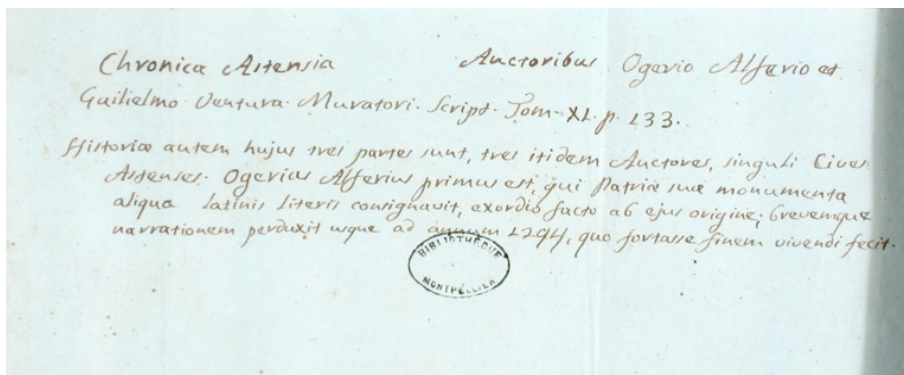 Chronica Astensia Auctoribus Ogerio Alferio et
Guilielmo Ventura. Muratori. Script. Tom. XI. p. 133.
Historiæ autem hujus tres partes sunt, tres itidem Auctores, singuli Cives
Astenses. Ogerius Alferius primus est, qui Patriæ suæ monumenta
aliqua latinis literis consignavit, exordio facto ab ejus origine; brevemque
narrationem perduxit usque ad annum 1294, quo fortasse finem vivendi fecit.
BIBLIOTHÈQUE
MONTPELLIER